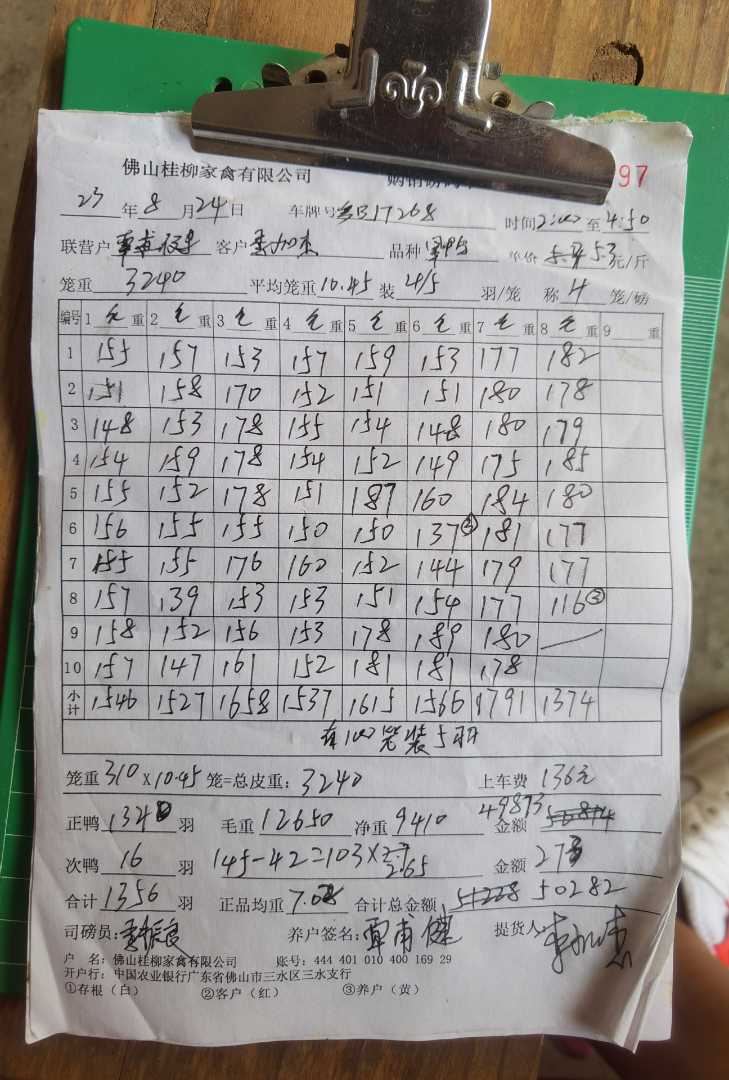 佛山桂柳家禽有限公司 97
23 年 8 月 24 日 车牌号 17268 时间 2:00 至 4:50
联营户 覃甫 客户 李加杰 品种 单价 5.3 元/斤
笼重 3240 平均笼重 10.45 装 4/5 羽/笼 称 4 笼/磅
编号 1 毛 重 2 毛 重 3 毛 重 4 毛 重 5 毛 重 6 毛 重 7 毛 重 8 毛 重 9 重
1 155 157 153 157 159 153 177 182
2 151 158 170 152 151 151 180 178
3 148 153 178 155 154 148 180 179
4 154 159 178 154 152 149 175 185
5 155 152 178 151 187 160 184 180
6 156 155 155 150 150 137③ 181 177
7 155 155 176 160 152 144 179 177
8 157 139 153 153 151 154 177 116③
9 158 152 156 153 178 189 180 —
10 157 147 161 152 181 181 178
小计 1546 1527 1658 1537 1615 1566 1791 1374
有100笼装5羽
笼重 310 x 10.45 笼=总皮重: 3240 上车费 136元
正鸭 1340 羽 毛重 12650 净重 9410 金额 49873
次鸭 16 羽 145-42=103 x 2.65 金额 273
合计 1356 羽 正品均重 7.02 合计总金额 51228 50282
司磅员: 养户签名: 覃甫健 提货人: 李加杰
户 名: 佛山桂柳家禽有限公司 账号: 444 401 010 400 169 29
开户行: 中国农业银行广东省佛山市三水区三水支行
①存根（白） ②客户（红） ③养户（黄）